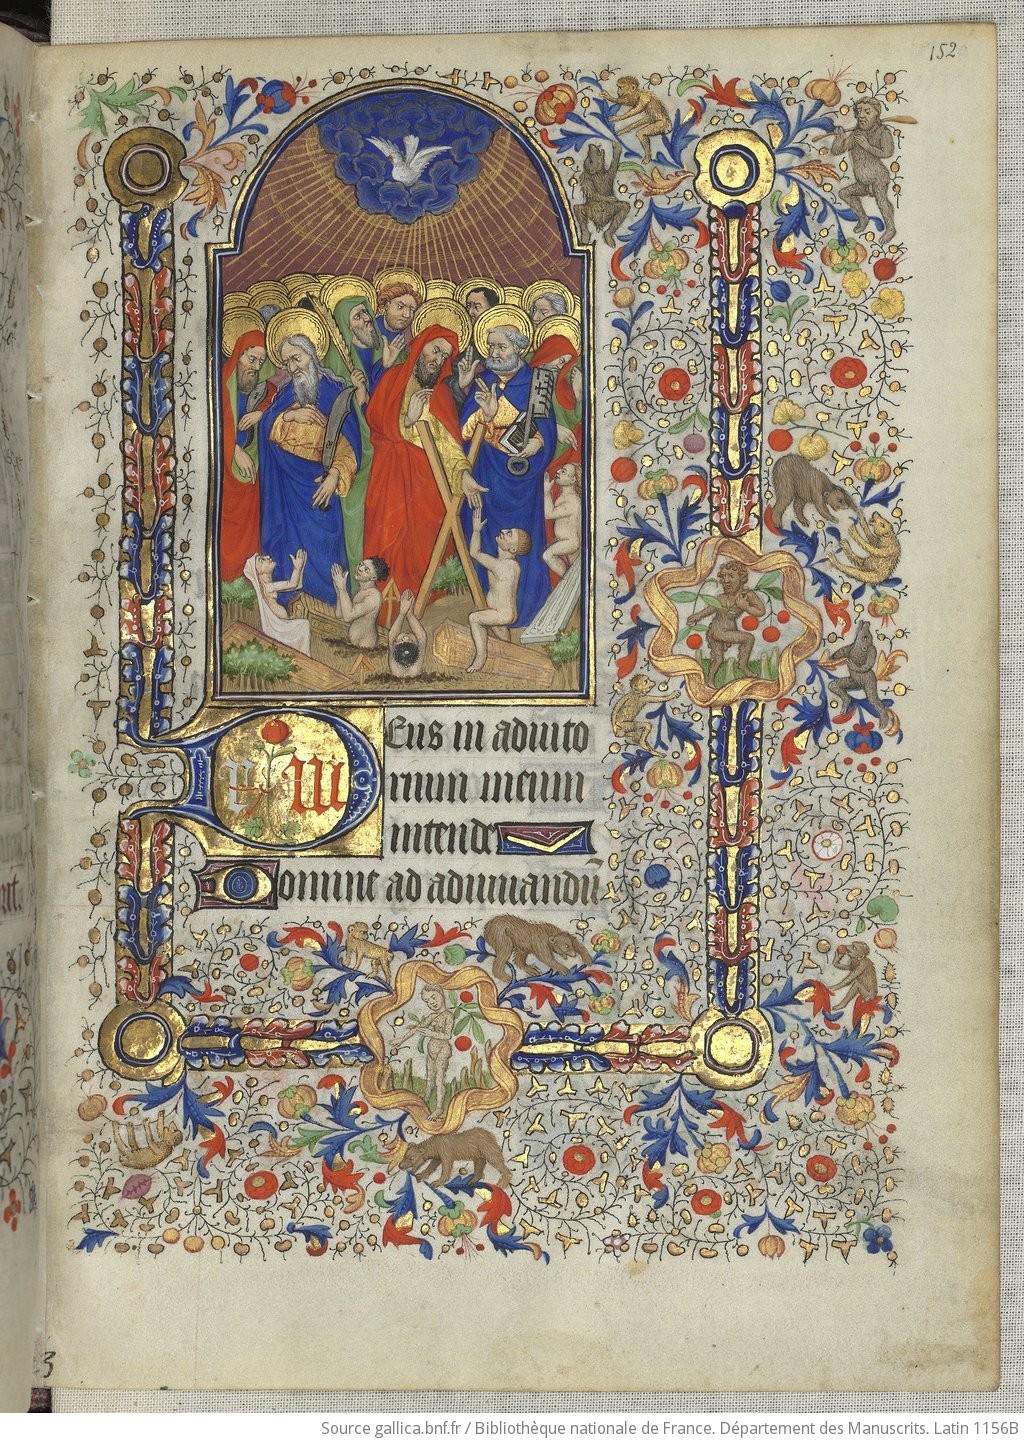 152
Deus in adiuto
rium meum
intende
Domine ad adiuuandū
3
Source gallica.bnf.fr / Bibliothèque nationale de France. Département des Manuscrits. Latin 1156B